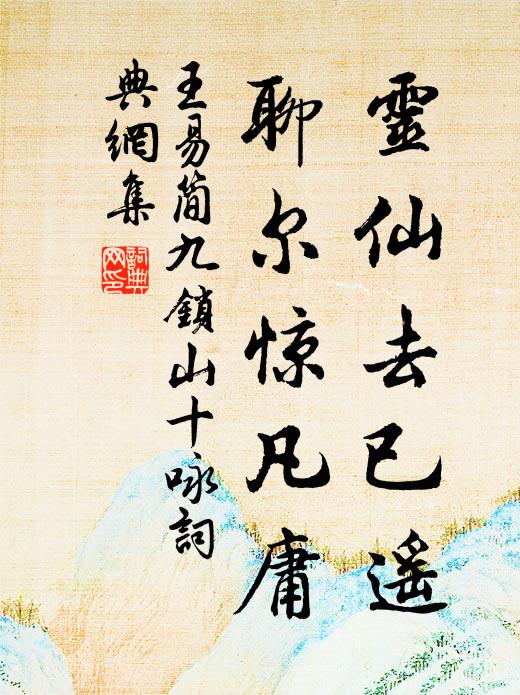 靈仙去已遥
聊尔惊凡庸
王易简九鎖山十咏詞
典網集
詞典
网印